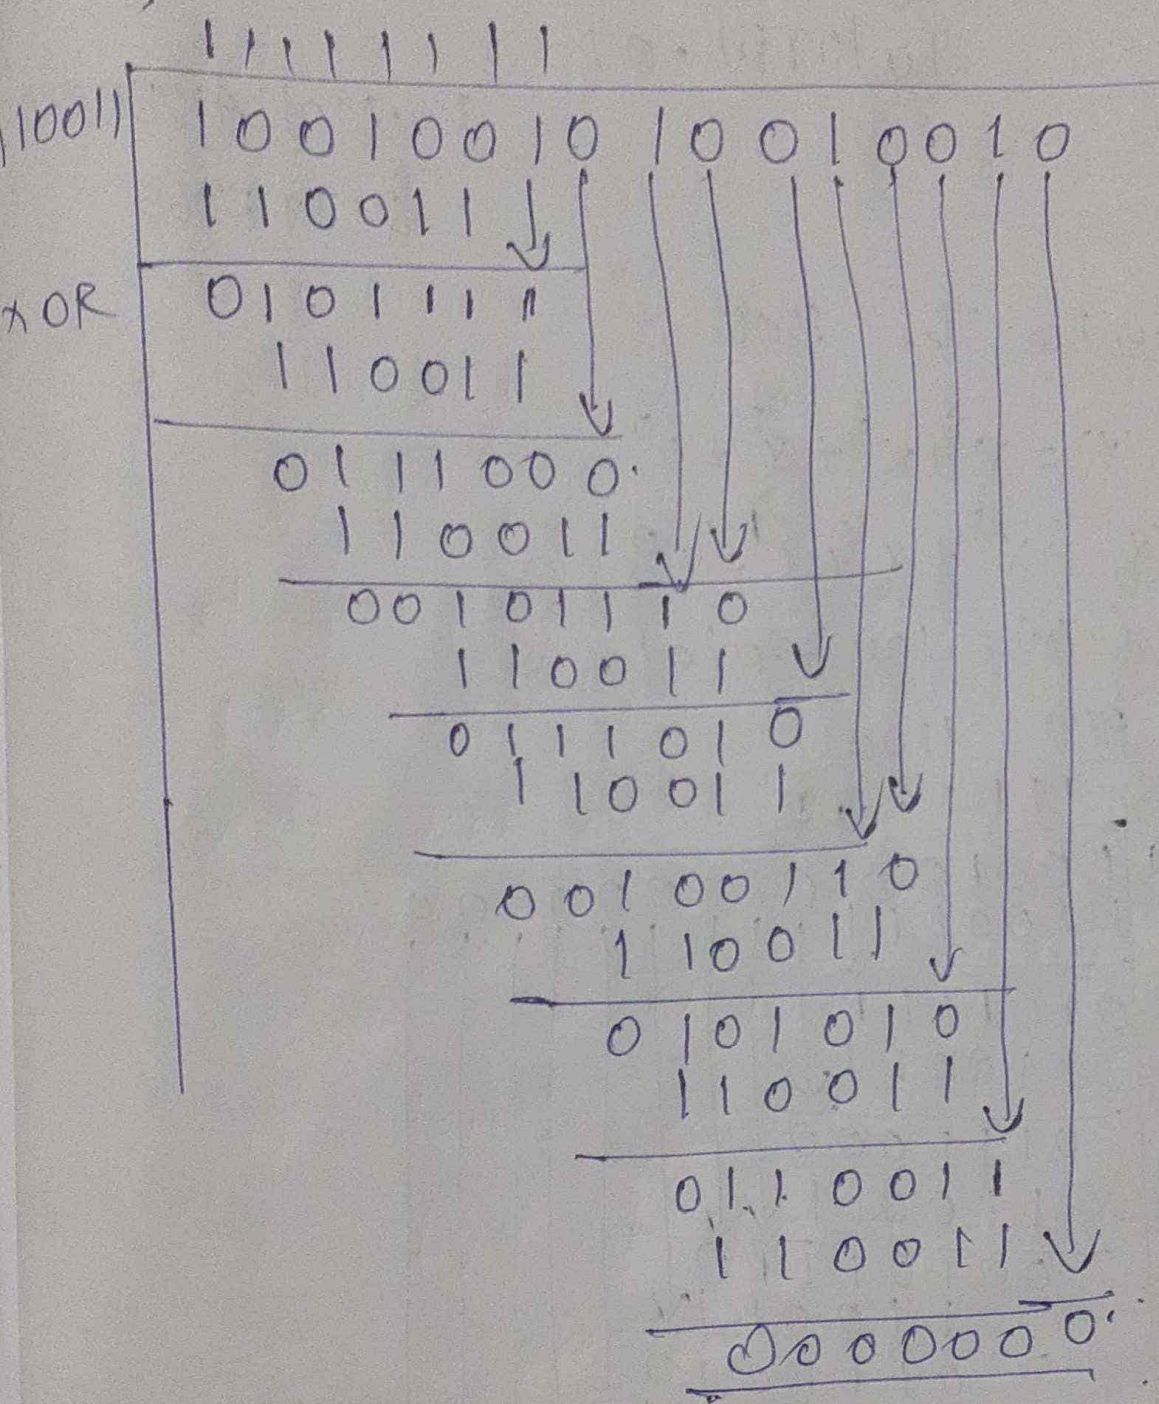 1 1 1 1 1 1 1 1
110011 1 0 0 1 0 0 1 0 1 0 0 1 0 0 1 0
1 1 0 0 1 1
XOR 0 1 0 1 1 1 1
1 1 0 0 1 1
0 1 1 1 0 0 0
1 1 0 0 1 1
0 0 1 0 1 1 1 0
1 1 0 0 1 1
0 1 1 1 0 1 0
1 1 0 0 1 1
0 0 1 0 0 1 1 0
1 1 0 0 1 1
0 1 0 1 0 1 0
1 1 0 0 1 1
0 1 1 0 0 1 1
1 1 0 0 1 1
0 0 0 0 0 0 0